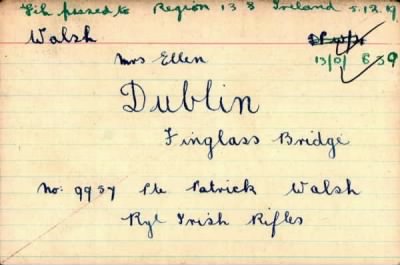 passed to Region 13 & Ireland 5.12.19
Walsh
Mrs Ellen
13/0/ 639
Dublin
Finglass Bridge
No: 9937 Pte Patrick Walsh
Ryl Irish Rifles